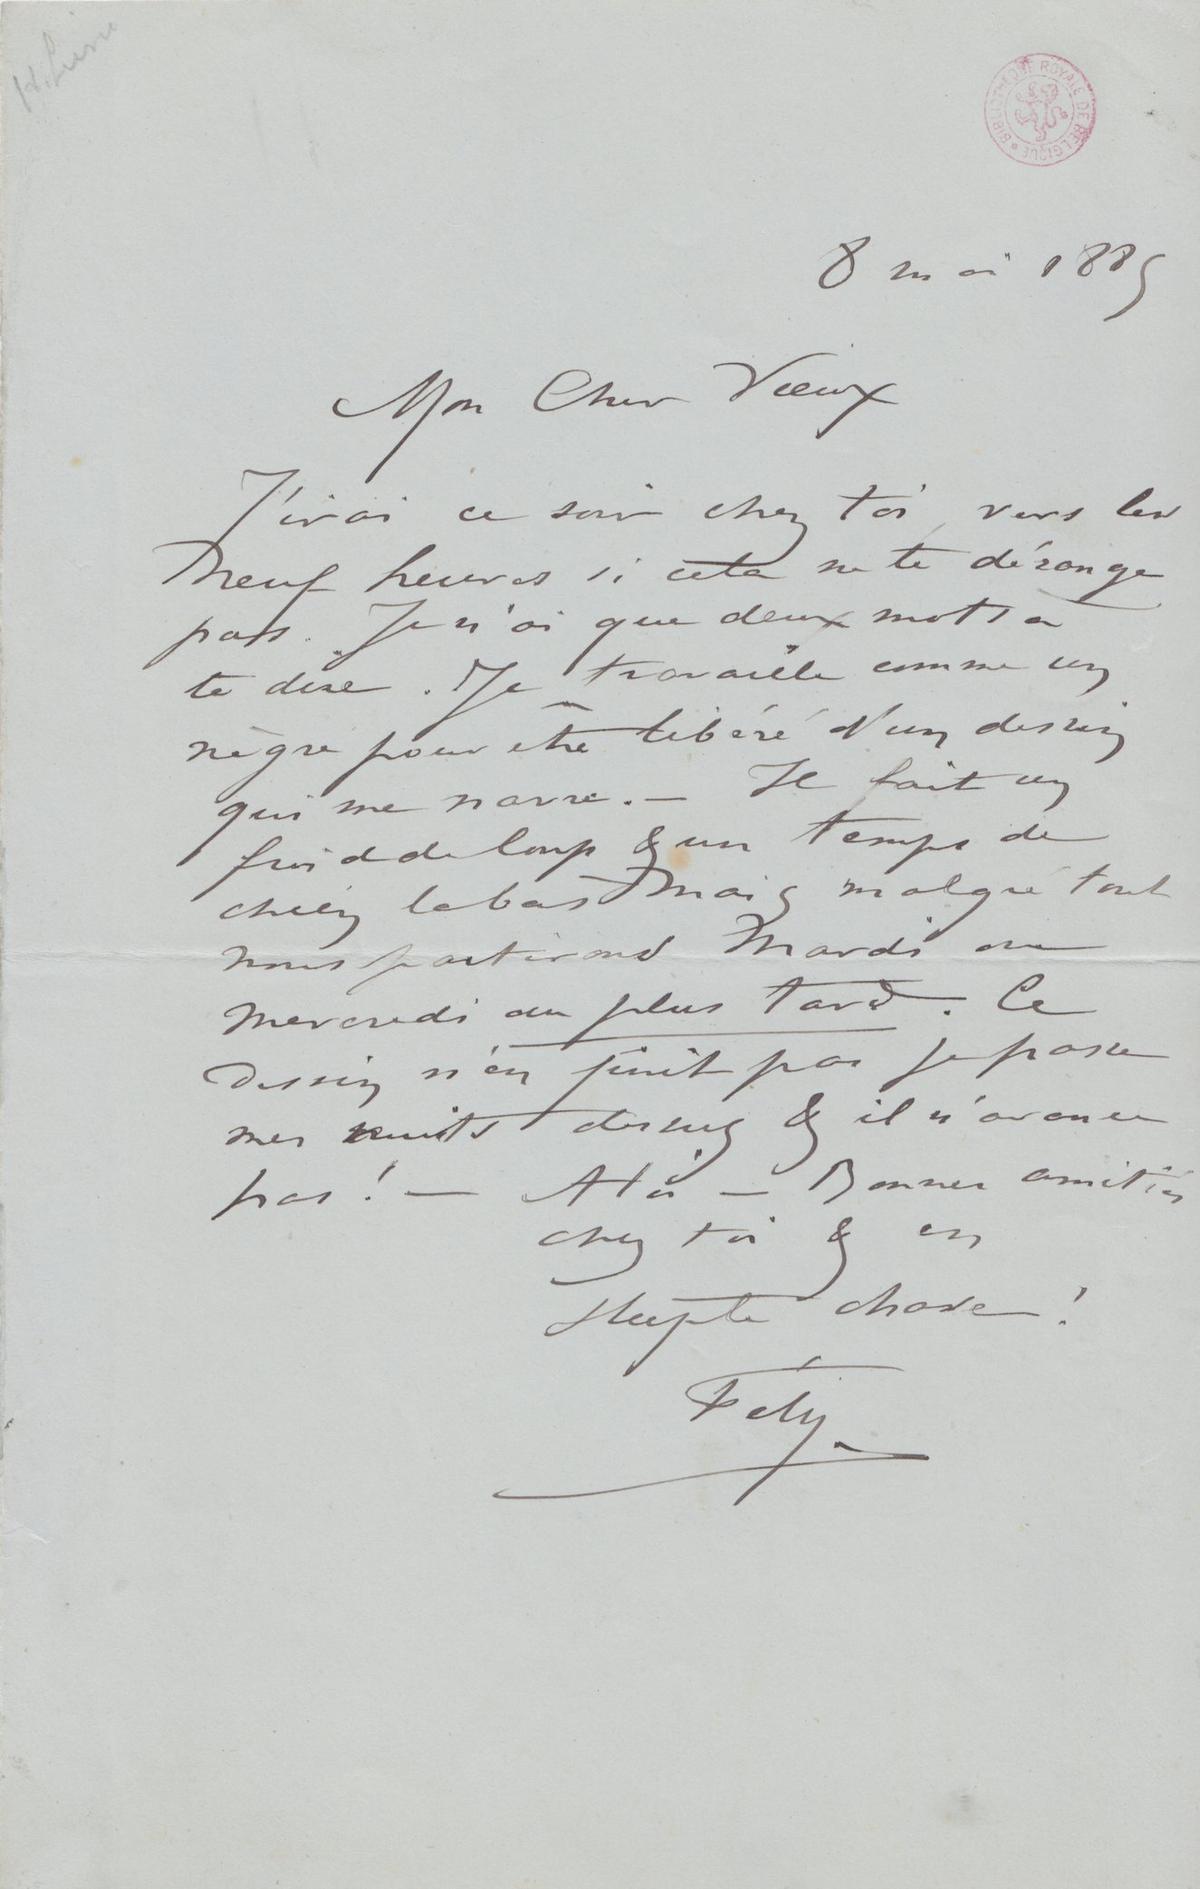 BIBLIOTHÈQUE ROYALE DE BELGIQUE
8 mai 1885
Mon Cher Vieux
J'irai ce soir chez toi, vers les
neuf heures si cela ne te dérange
pas. Je n'ai que deux mots a
te dire. Je travaille comme un
nègre pour être libéré d'un dessin
qui me navre. — Il fait un
froid de loup & un temps de
chien labas Mais malgré tout
nous partirons Mardi ou
mercredi au plus tard. Ce
dessin n'en finit pas je passe
mes nuits dessus & il n'avance
pas! — A toi — Bonnes amitiés
chez toi & en
chose!
Fély